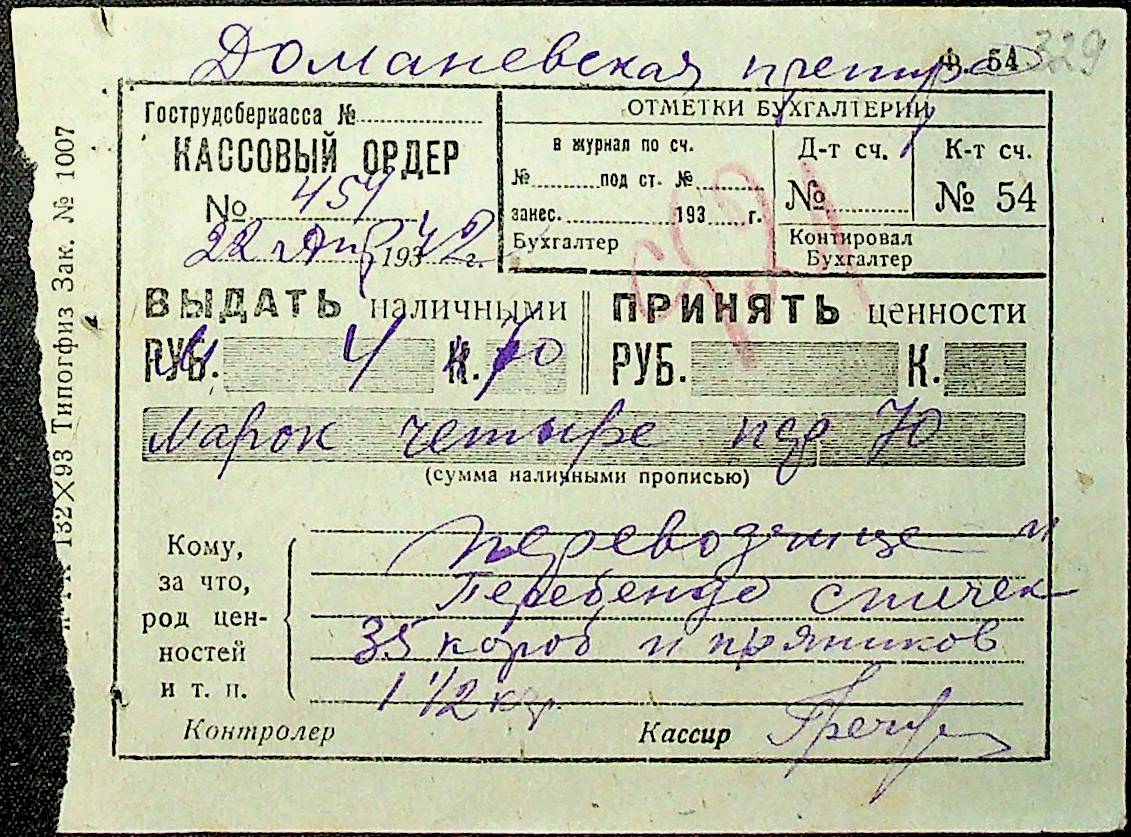 Доманевская претура
Ф. 54
329
Гострудсберкасса №
КАССОВЫЙ ОРДЕР
№ 454
22 го Апр 1942 г.
ОТМЕТКИ БУХГАЛТЕРИИ
в журнал по сч.
№ под ст. №
занес. 193 г.
Бухгалтер
Д-т сч.
№
К-т сч.
№ 54
Контировал
Бухгалтер
ВЫДАТЬ наличными
РУБ. 4 К. 70
ПРИНЯТЬ ценности
РУБ. К.
марок четыре пф 70
(сумма наличными прописью)
Кому,
за что,
род цен-
ностей
и т. п.
переводчице и
Перебендо спичек
35 короб и пряников
1 1/2 кгр.
Контролер
Кассир
132×93 Типогфиз Зак. № 1007